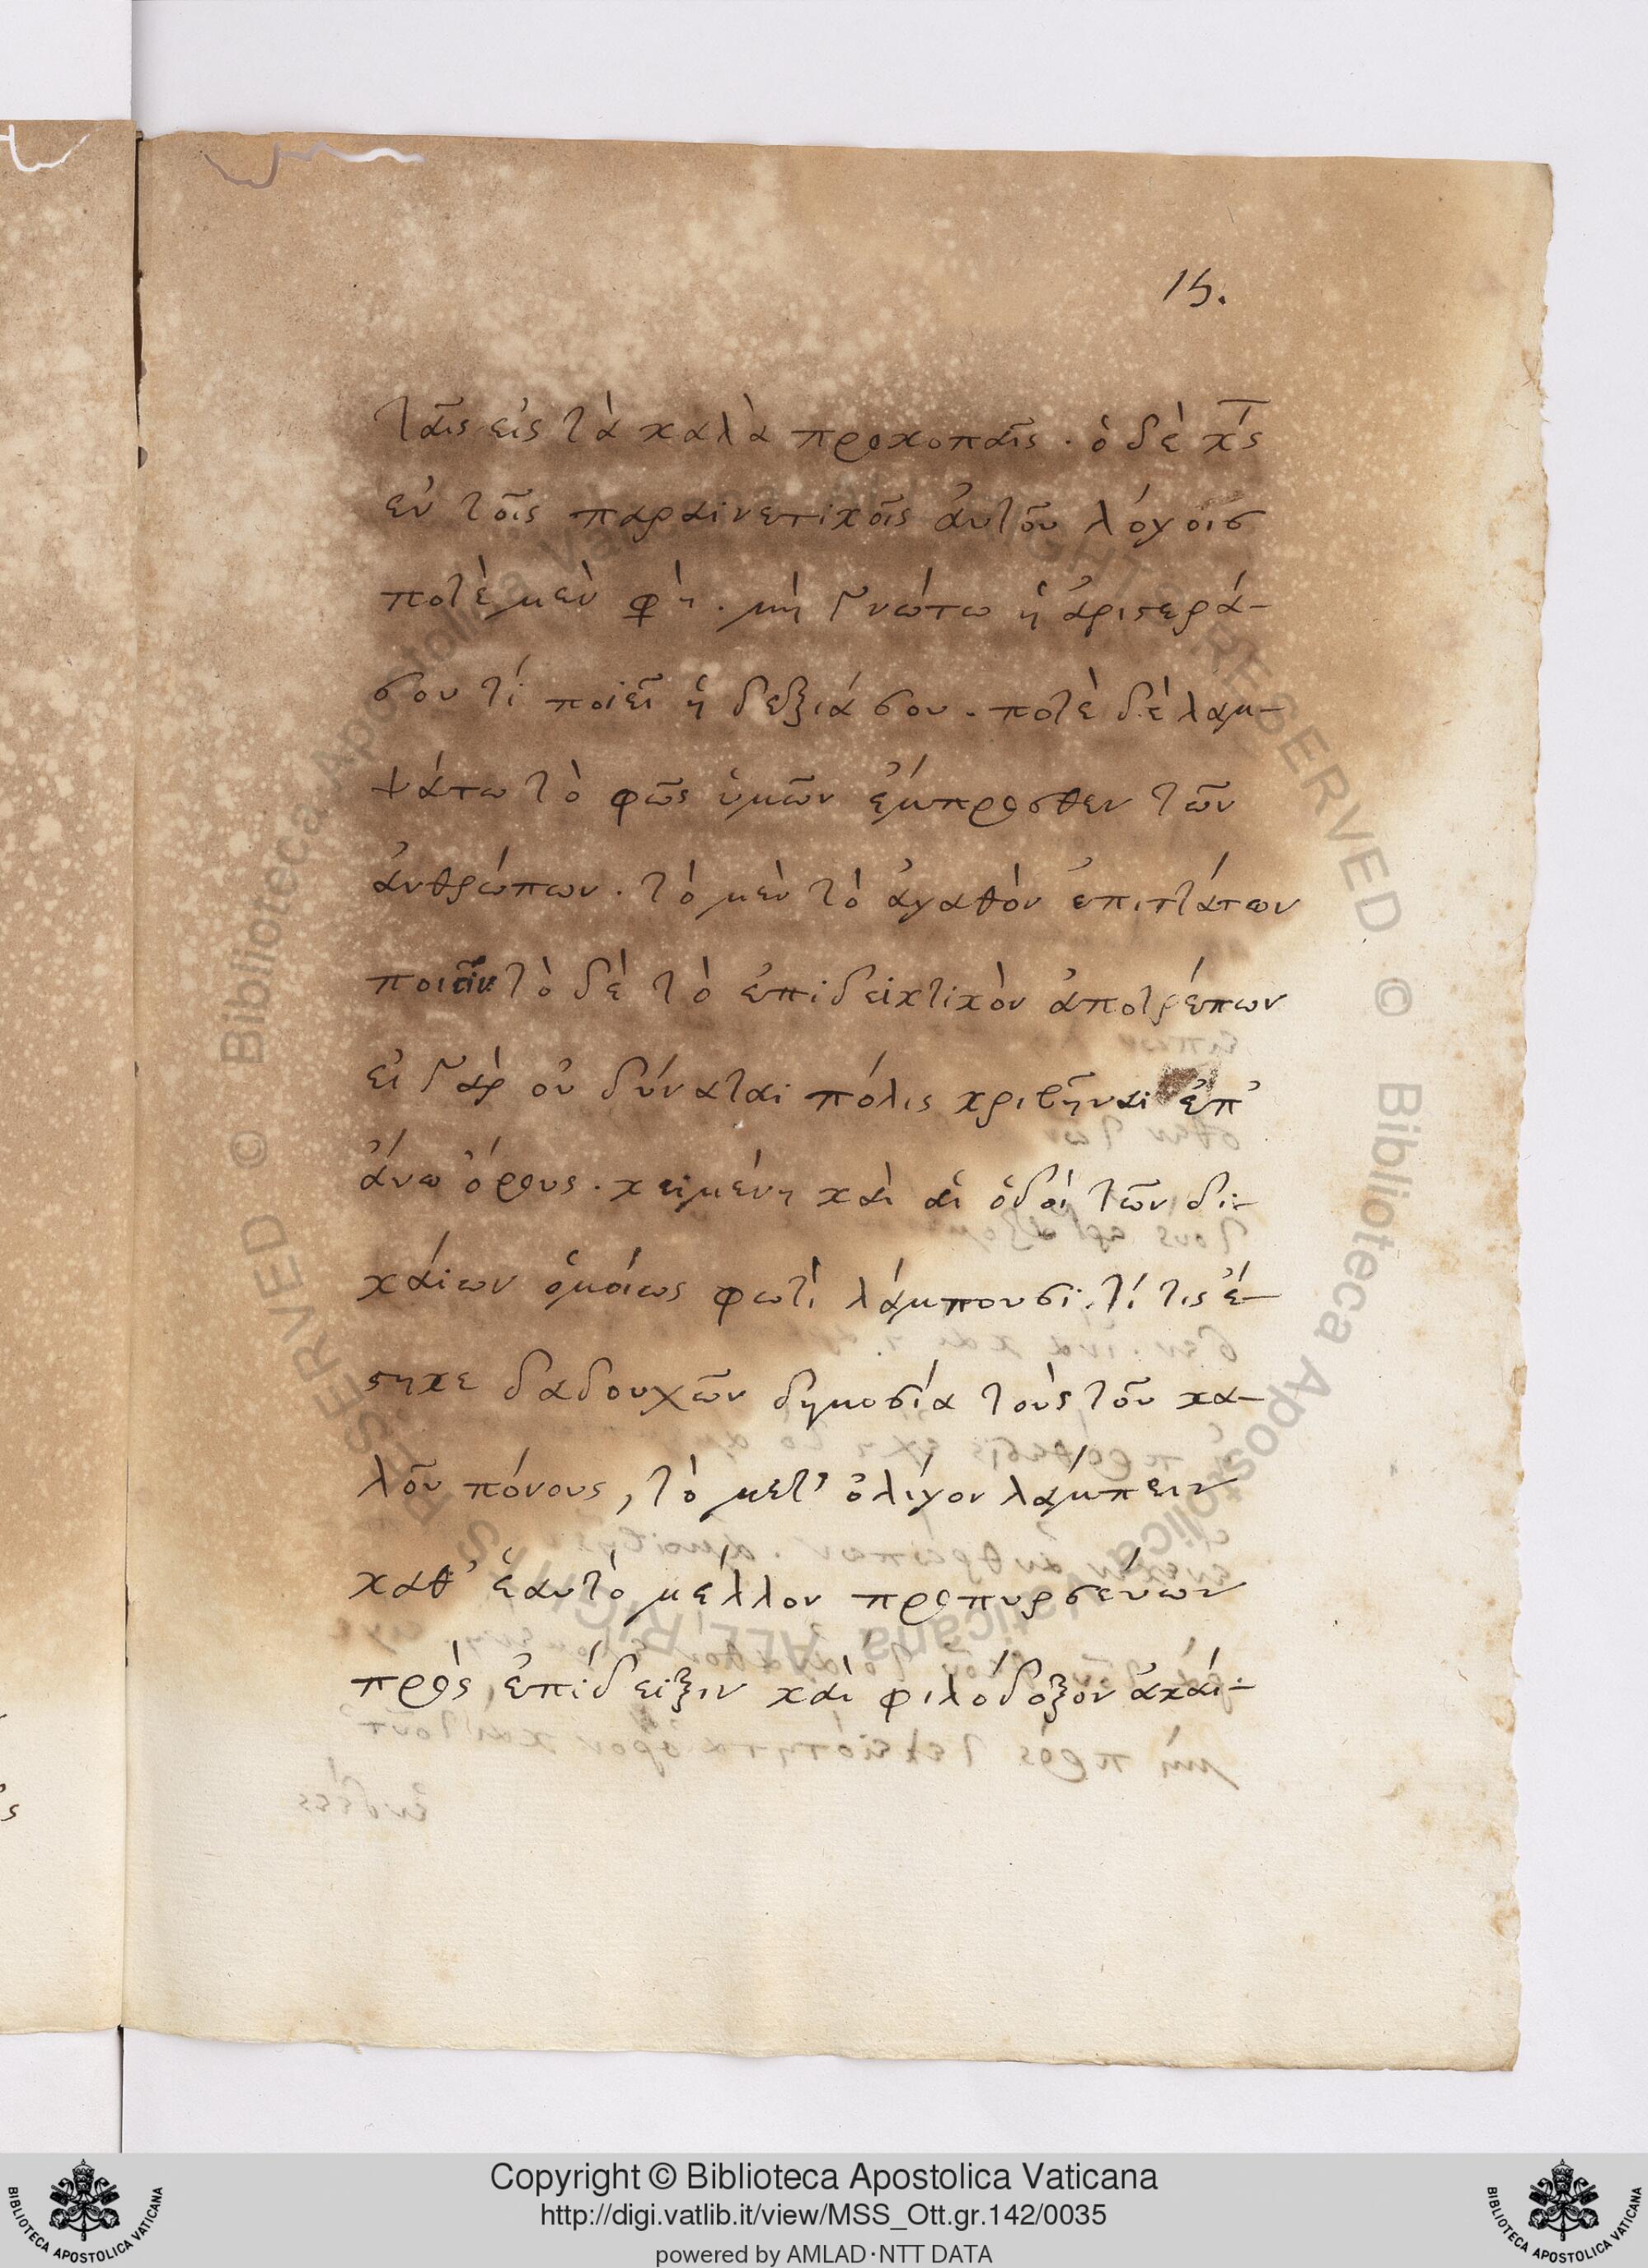 15.
ταῖς εἰς τὰ καλὰ προκοπαῖς · ὁ δὲ χ̅ς
ἐν τοῖς παραινετικοῖς ἀυτοῦ λόγοις
ποτὲ μὲν φὴ · μὴ γνώτω ἡ ἀριστερά-
σου τί ποιεῖ ἡ δεξιά σου · ποτὲ δὲ λαμ-
ψάτω τὸ φῶς ὑμῶν ἔμπροσθεν τῶν
ἀνθρώπων · τὸ μὲν τὸ ἀγαθὸν ἐπιτάττων
ποιεῖν τὸ δὲ τὸ ἐπιδεικτικὸν ἀποτρέπων
εἰ γὰρ οὐ δύναται πόλις κριβῆναι ἐπ'
ἄνω ὄρους · κειμένη καὶ αἱ ὁδοὶ τῶν δι-
καίων ὁμοίως φωτὶ λάμπουσι · τί τις ἕ-
στηκε δαδουχῶν δημοσία τοὺς τοῦ κα-
λοῦ πόνους, τὸ μετ' ὀλίγον λάμπειν
καθ' ἑαυτὸ μέλλον προπυρσεύων
πρὸς ἐπίδειξιν καὶ φιλόδοξον ἀκαι-
Copyright © Biblioteca Apostolica Vaticana
http://digi.vatlib.it/view/MSS_Ott.gr.142/0035
powered by AMLAD·NTT DATA
BIBLIOTECA APOSTOLICA VATICANA
BIBLIOTECA APOSTOLICA VATICANA
© Biblioteca Apostolica Vaticana ALL RIGHTS RESERVED
© Biblioteca Apostolica Vaticana ALL RIGHTS RESERVED